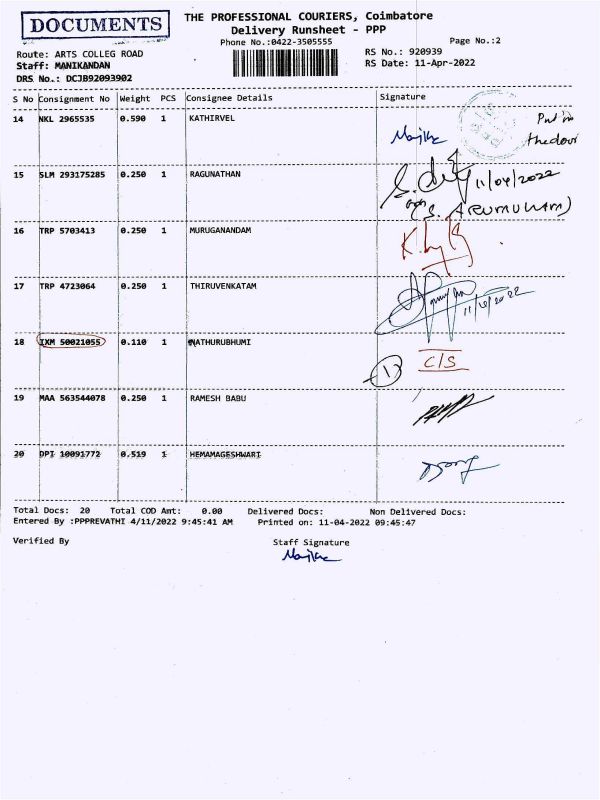 DOCUMENTS
THE PROFESSIONAL COURIERS, Coimbatore
Delivery Runsheet - PPP
Phone No.:0422-3505555
Page No.:2
Route: ARTS COLLEG ROAD
RS No.: 920939
Staff: MANIKANDAN
RS Date: 11-Apr-2022
DRS No.: DCJB92093902
S No Consignment No Weight PCS Consignee Details Signature
14 NKL 2965535 0.590 1 KATHIRVEL
Put in
the door
15 SLM 293175285 0.250 1 RAGUNATHAN
11/04/2022
(S. ARUMUGAM)
16 TRP 5703413 0.250 1 MURUGANANDAM
17 TRP 4723064 0.250 1 THIRUVENKATAM
18 IXM 50021055 0.110 1 NATHURUBHUMI
1 C/S
19 MAA 563544078 0.250 1 RAMESH BABU
20 DPI 10091772 0.519 1 HEMAMAGESHWARI
Total Docs: 20 Total COD Amt: 0.00 Delivered Docs: Non Delivered Docs:
Entered By :PPPREVATHI 4/11/2022 9:45:41 AM Printed on: 11-04-2022 09:45:47
Verified By Staff Signature